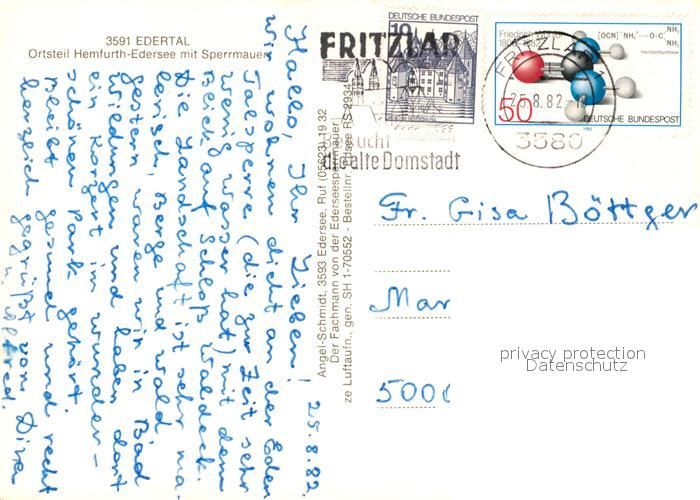 3591 EDERTAL
Ortsteil Hemfurth-Edersee mit Sperrmauer
Hallo, Ihr Lieben! 25.8.82.
wir wohnen dicht an der Eder
Talsperre (die zur Zeit sehr
wenig wasser hat) mit dem
Blick auf Schloß Waldeck.
Die Landschaft ist sehr ma-
lerisch, Berge und Wald
gestern waren wir in Bad
Wildungen und haben dort
ein Konzert im wunder-
schönen Park gehört.
Bleibt gesund und recht
herzlich gegrüßt von Dina
u. Alfred.
Angel-Schmidt, 3593 Edersee, Ruf (05623) 19 32
Der Fachmann von der Ederseesperrmauer
ze Luftaufn., gen. SH 1-70552 - Bestellnr. Edersee RS 2934
FRITZLAR
die alte Domstadt
DEUTSCHE BUNDESPOST
Friedrich Wöhler
[OCN]⁻ NH₄⁺ → O=C NH₂ NH₂
Harnstoffsynthese
50
DEUTSCHE BUNDESPOST
1982
FRITZLAR
25.8.82
3580
Fr. Gisa Böttger
Mar
500
privacy protection
Datenschutz